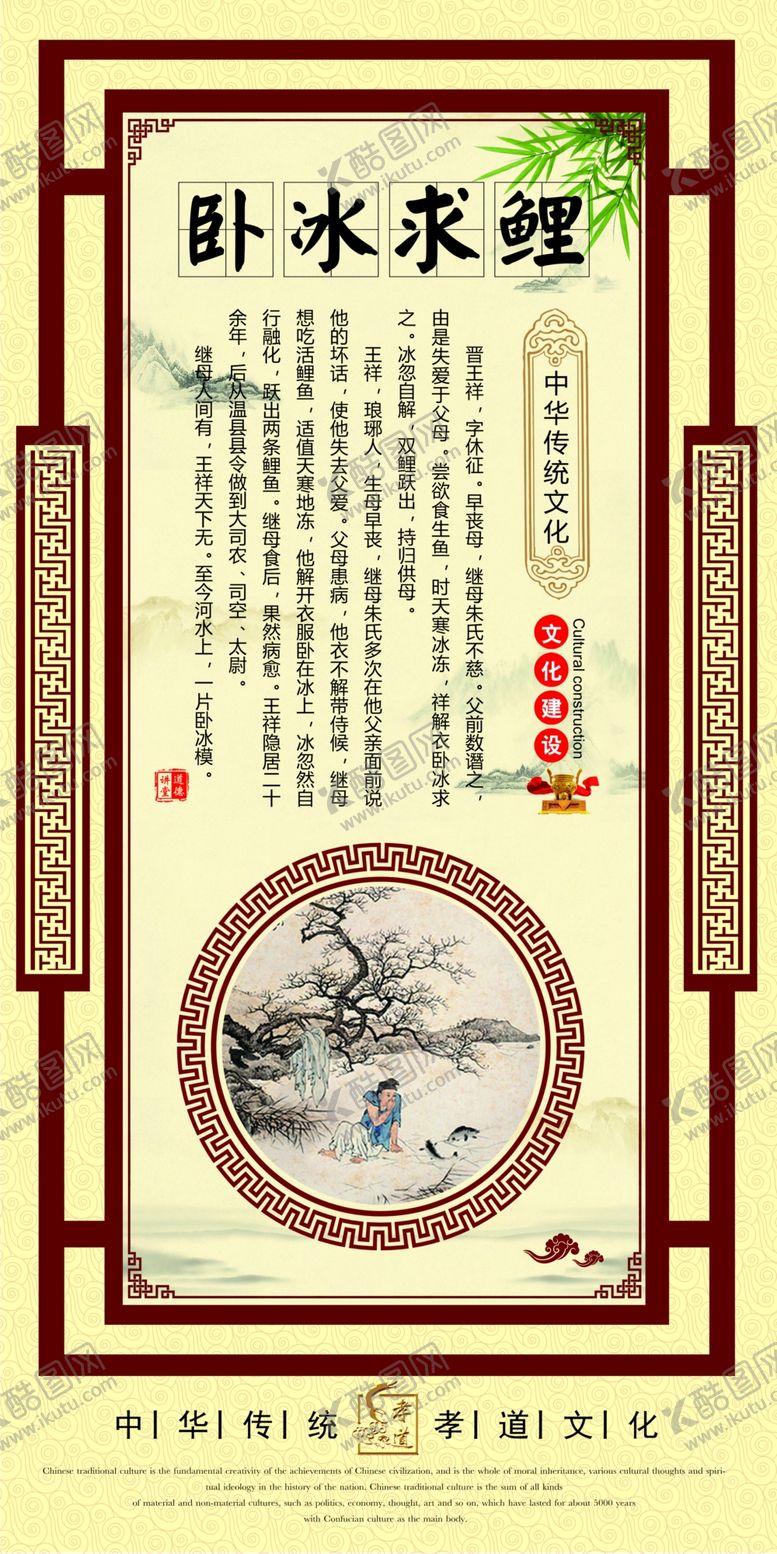 卧冰求鲤
中华传统文化
文化建设
Cultural construction
晋王祥，字休征。早丧母，继母朱氏不慈。父前数谮之，
由是失爱于父母。尝欲食生鱼，时天寒冰冻，祥解衣卧冰求
之。冰忽自解，双鲤跃出，持归供母。
王祥，琅琊人，生母早丧，继母朱氏多次在他父亲面前说
他的坏话，使他失去父爱。父母患病，他衣不解带侍候，继母
想吃活鲤鱼，适值天寒地冻，他解开衣服卧在冰上，冰忽然自
行融化，跃出两条鲤鱼。继母食后，果然病愈。王祥隐居二十
余年，后从温县县令做到大司农、司空、太尉。
继母人间有，王祥天下无。至今河水上，一片卧冰模。
道德
讲堂
中华传统
孝道
孝道文化
Chinese traditional culture is the fundamental creativity of the achievements of Chinese civilization, and is the whole of moral inheritance, various cultural thoughts and spiri-
tual ideology in the history of the nation. Chinese traditional culture is the sum of all kinds
of material and non-material cultures, such as politics, economy, thought, art and so on, which have lasted for about 5000 years
with Confucian culture as the main body.
酷图网
www.ikutu.com